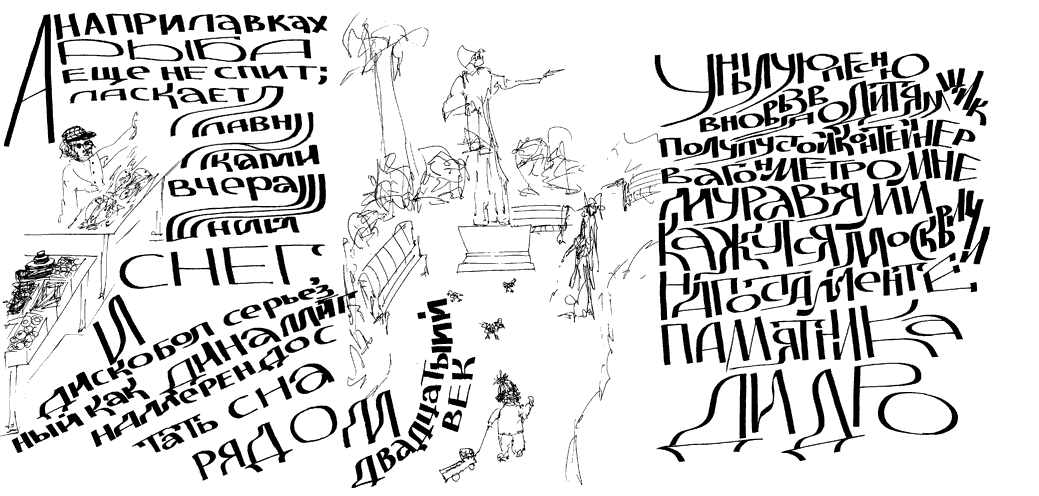 А НА ПРИЛАВКАХ
РЫБА
ЕЩЕ НЕ СПИТ;
ЛАСКАЕТ
ПЛАВНИ
КАМИ
ВЧЕРАШ
НИЙ
СНЕГ;
И
ДИСКОБОЛ СЕРЬЕЗ
НЫЙ КАК ДИНАМИТ
НАМЕРЕН ДОС
ТАТЬ СНА
РЯДОМ
ДВАДЦАТЫЙ
ВЕК
УНЫЛУЮ ПЕСНЮ
ВНОВЬ ЗАВОДИТ ЯМЩИК
ПОЛУПУСТОЙ КОНТЕЙНЕР
ВАГОН МЕТРО МНЕ
МУРАВЬЯМИ
КАЖУТСЯ МОСКВИЧИ
НА ПОСТАМЕНТЕ
ПАМЯТНИКА
ДИДРО